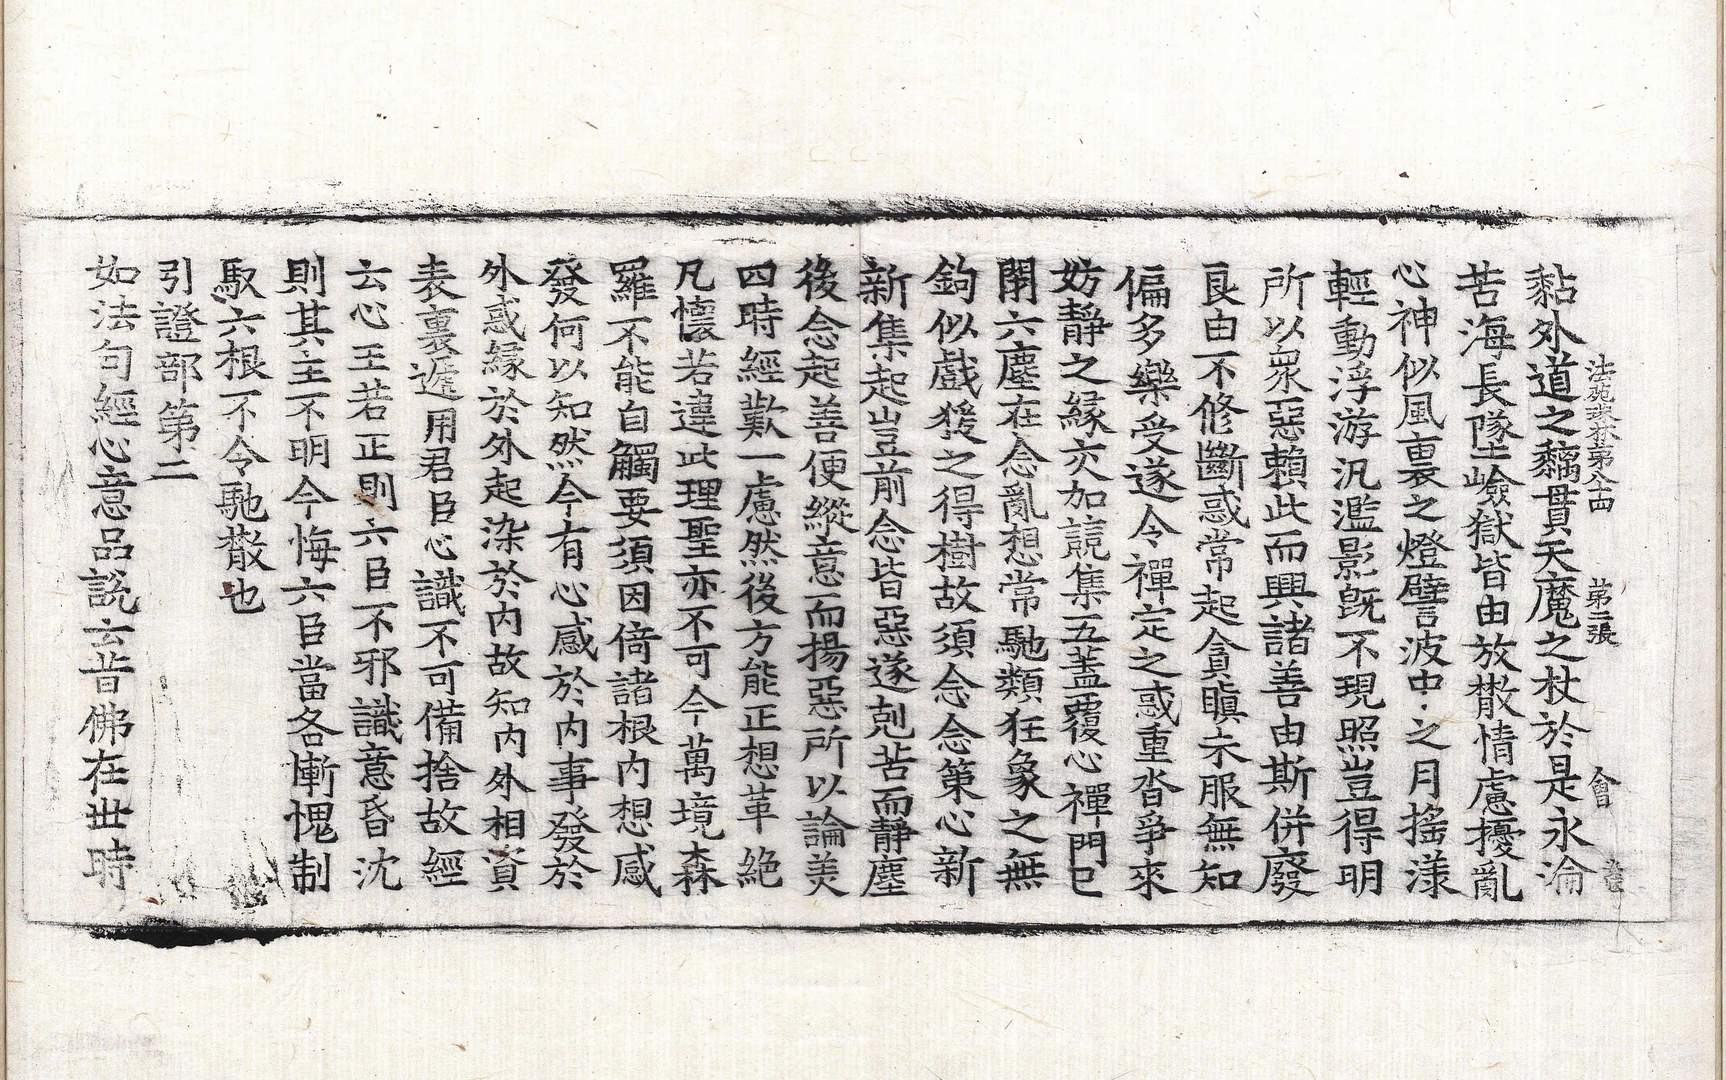 法苑珠林第八十四　第三張　會
黏外道之黐貫天魔之杖於是永淪
苦海長墜嶮獄皆由放散情慮擾亂
心神似風裏之燈譬波中之月搖漾
輕動浮游汎濫影既不現照豈得明
所以眾惡賴此而興諸善由斯併廢
良由不修斷惑常起貪瞋未服無知
偏多樂受遂令禪定之惑重沓爭來
妨靜之緣交加競集五蓋覆心禪門已
閉六塵在念亂想常馳類狂象之無
鉤似戲猨之得樹故須念念策心新
新集起豈前念皆惡遂剋苦而靜塵
後念起善便縱意而揚惡所以論美
四時經歎一慮然後方能正想革絕
凡懷若違此理聖亦不可今萬境森
羅不能自觸要須因倚諸根內想感
發何以知然今有心感於內事發於
外惑緣於外起染於內故知內外相資
表裏遞用君臣心識不可備捨故經
云心王若正則六臣不邪識意昏沈
則其主不明今悔六臣當各慚愧制
馭六根不令馳散也
引證部第二
如法句經心意品說云昔佛在世時